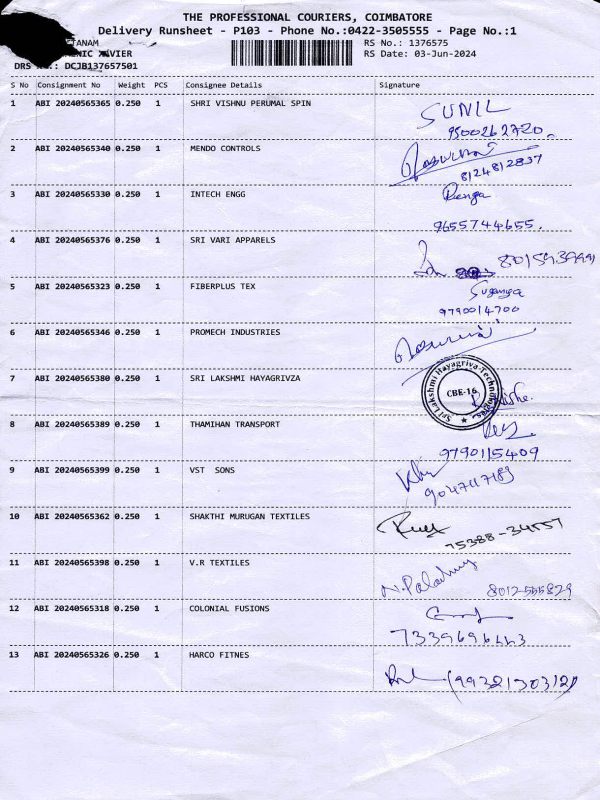 THE PROFESSIONAL COURIERS, COIMBATORE
Delivery Runsheet - P103 - Phone No.:0422-3505555 - Page No.:1
RS No.: 1376575
RS Date: 03-Jun-2024
DRS DCJB137657501
S No Consignment No Weight PCS Consignee Details Signature
1 ABI 20240565365 0.250 1 SHRI VISHNU PERUMAL SPIN SUNIL
9500262720.
2 ABI 20240565340 0.250 1 MENDO CONTROLS
8124812837
3 ABI 20240565330 0.250 1 INTECH ENGG Renga
9655744655.
4 ABI 20240565376 0.250 1 SRI VARI APPARELS
5 ABI 20240565323 0.250 1 FIBERPLUS TEX Suganya
9790014700
6 ABI 20240565346 0.250 1 PROMECH INDUSTRIES
7 ABI 20240565380 0.250 1 SRI LAKSHMI HAYAGRIVZA
Sri Lakshmi Hayagriva Technologies
CBE-16
8 ABI 20240565389 0.250 1 THAMIHAN TRANSPORT
9790115409
9 ABI 20240565399 0.250 1 VST SONS
10 ABI 20240565362 0.250 1 SHAKTHI MURUGAN TEXTILES
11 ABI 20240565398 0.250 1 V.R TEXTILES
8012-555829
12 ABI 20240565318 0.250 1 COLONIAL FUSIONS
13 ABI 20240565326 0.250 1 HARCO FITNES